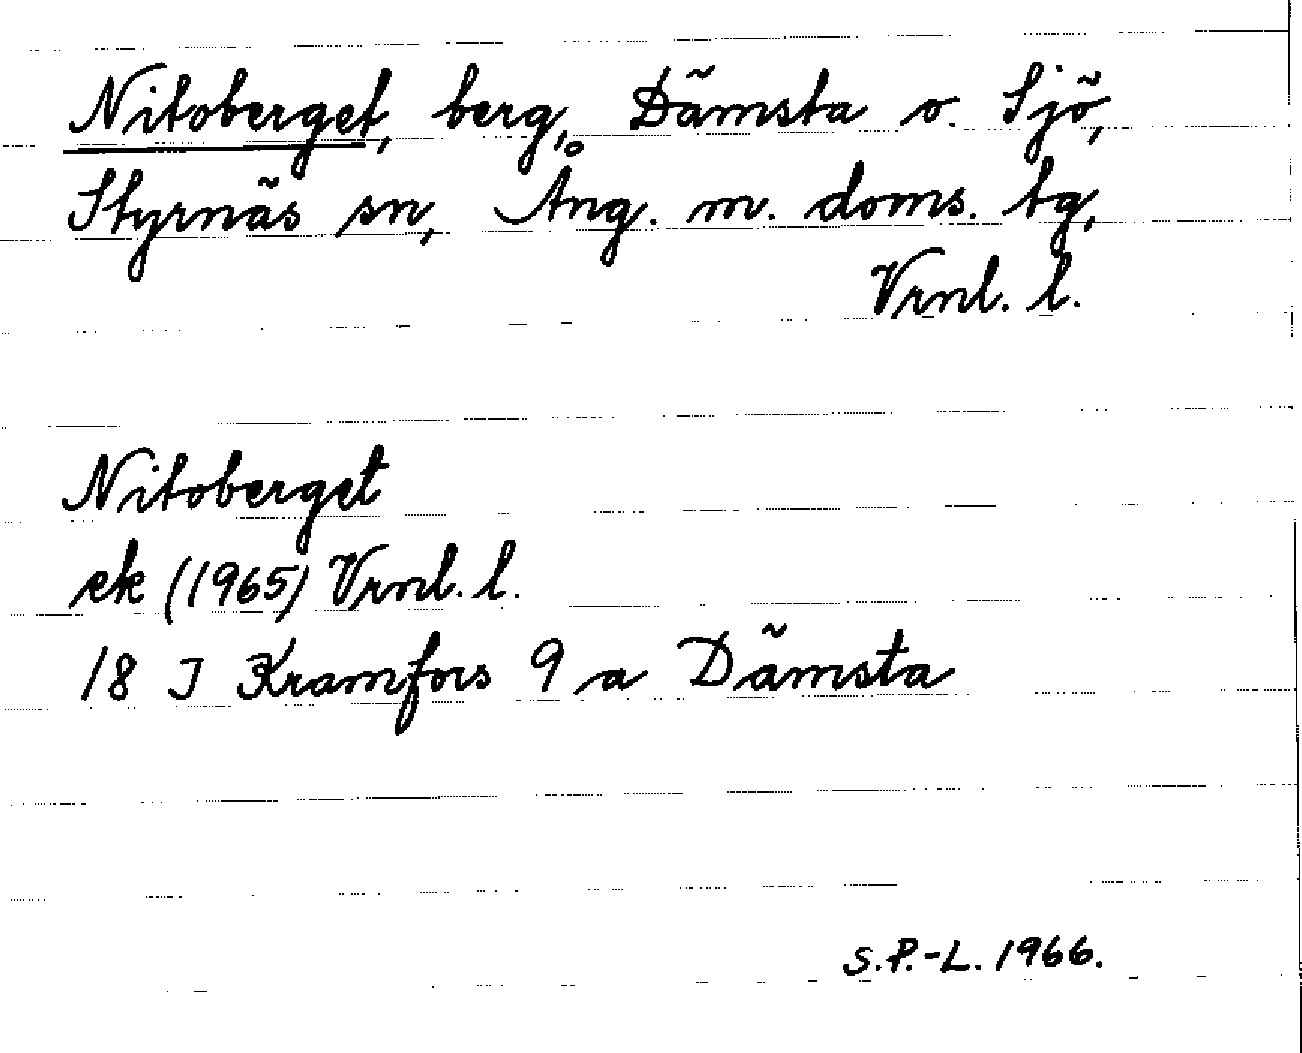 Nitoberget, berg, Dämsta o. Sjö,
Styrnäs sn, Ång. m. doms. tg,
Vrnl. l.
Nitoberget
ek (1965) Vrnl. l.
18 J Kramfors 9 a Dämsta
S.P.-L. 1966.